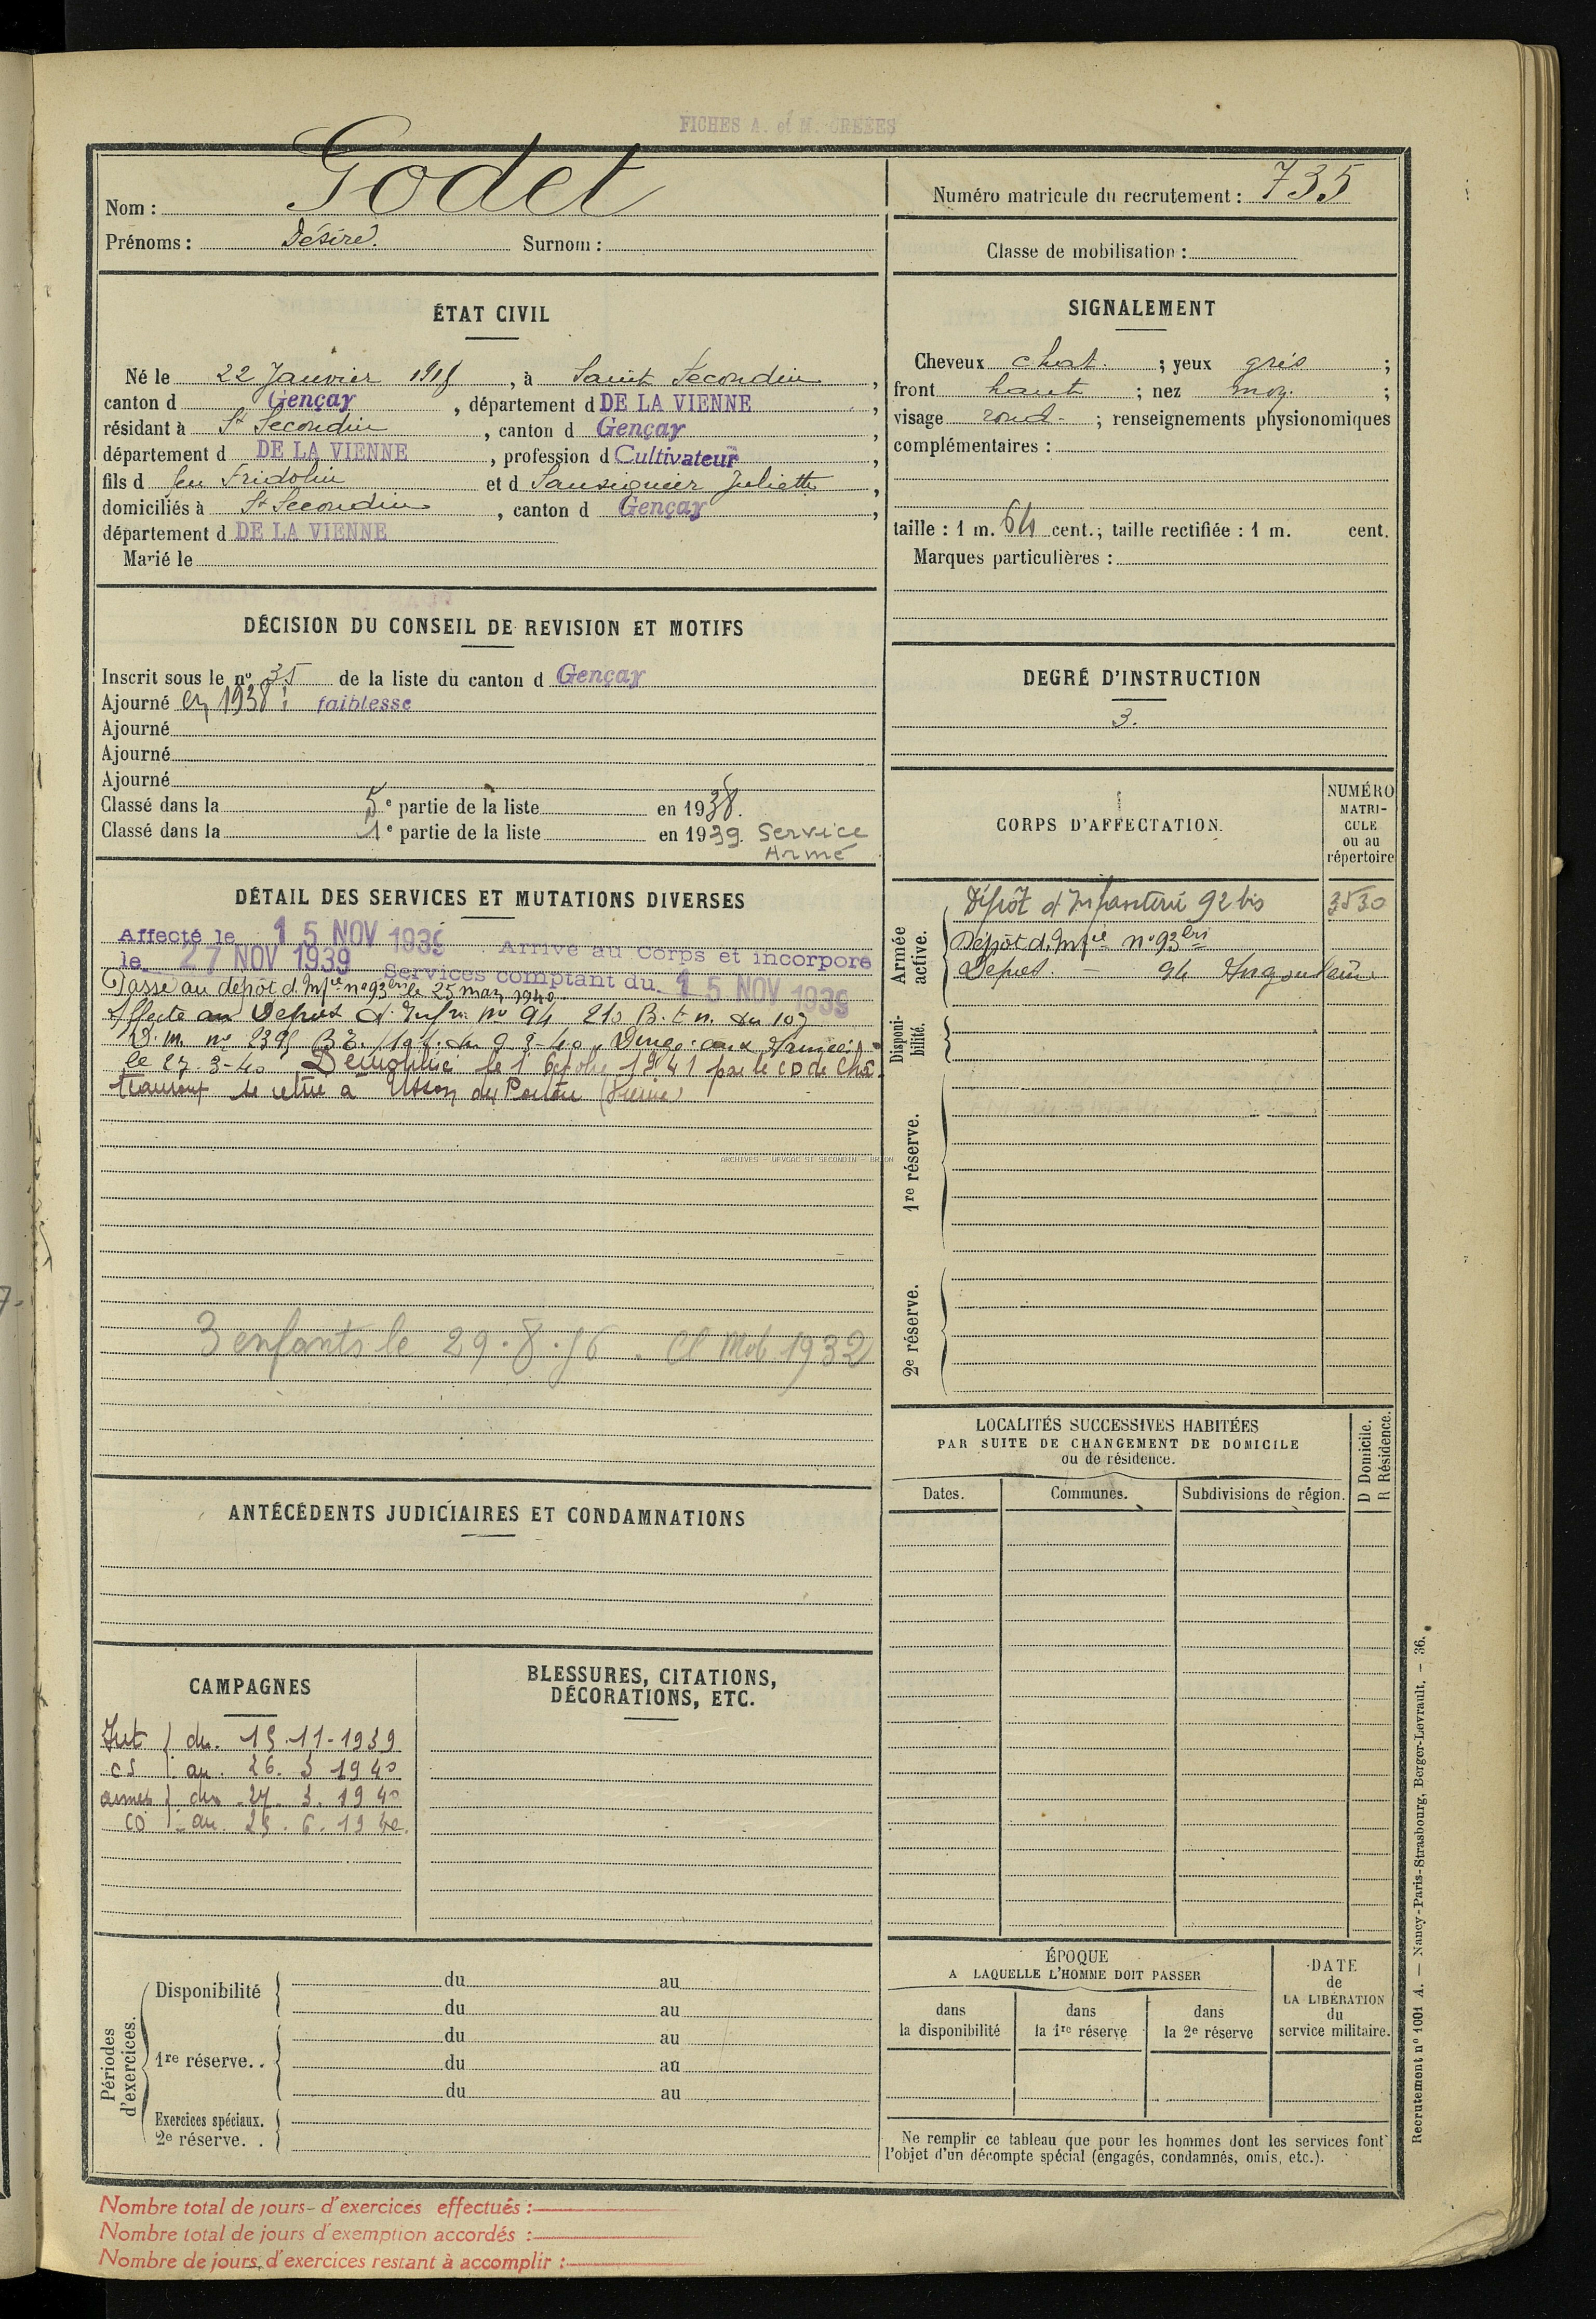 FICHES A. et M. CRÉÉES
Nom : Godet
Prénoms : Désiré. Surnom :
Numéro matricule du recrutement : 735
Classe de mobilisation :
ÉTAT CIVIL
Né le 22 Janvier 1918, à Saint Secondin,
canton d Gençay, département d DE LA VIENNE,
résidant à St Secondin, canton d Gençay,
département d DE LA VIENNE, profession d Cultivateur,
fils d feu Fridolin et d Juliette,
domiciliés à St Secondin, canton d Gençay,
département d DE LA VIENNE
Marié le
SIGNALEMENT
Cheveux chat. ; yeux gris ;
front haut ; nez moy. ;
visage rond. ; renseignements physionomiques
complémentaires :
taille : 1 m. 64 cent.; taille rectifiée : 1 m. cent.
Marques particulières :
DÉCISION DU CONSEIL DE REVISION ET MOTIFS
Inscrit sous le no 35 de la liste du canton d Gençay
Ajourné en 1938 : faiblesse
Ajourné
Ajourné
Ajourné
Classé dans la 5e partie de la liste en 1938.
Classé dans la 1e partie de la liste en 1939. Service
Armé
DEGRÉ D'INSTRUCTION
3.
CORPS D'AFFECTATION.
NUMÉRO
MATRI-
CULE
ou au
répertoire
Armée
active.
Dépôt d'Infanterie 92 bis 3530
Dépôt d'Infie no 93 bis
Depot. — 94 Angoulême
Disponi-
bilité.
1re réserve.
2e réserve.
DÉTAIL DES SERVICES ET MUTATIONS DIVERSES
Affecté le 15 NOV 1939 Arrivé au Corps et incorporé
le 27 NOV 1939 Services comptant du 15 NOV 1939
Passé au dépot d'Infie no 93 bis le 25 mars 1940
Affecté au Depot d'Infie no 94
le 27-3-40 Démobilisé le 1 Octobre 1941 par le CD de Châ
teauroux se retire à Usson du Poitou (Vienne)
ARCHIVES - UFVGAC ST SECONDIN - BRION
3 enfants le 29.8.56. Cl Mob 1932
ANTÉCÉDENTS JUDICIAIRES ET CONDAMNATIONS
LOCALITÉS SUCCESSIVES HABITÉES
PAR SUITE DE CHANGEMENT DE DOMICILE
ou de résidence.
D Domicile.
R Résidence.
Dates.
Communes.
Subdivisions de région.
CAMPAGNES
Int du 15-11-1939
CS au 26. 3 1940
armes du 27. 3. 1940
CD au 25. 6. 1940.
BLESSURES, CITATIONS,
DÉCORATIONS, ETC.
Périodes
d'exercices.
Disponibilité du au
du au
1re réserve.. du au
du au
du au
Exercices spéciaux.
2e réserve. .
ÉPOQUE
A LAQUELLE L'HOMME DOIT PASSER
dans
la disponibilité
dans
la 1re réserve
dans
la 2e réserve
DATE
de
LA LIBÉRATION
du
service militaire.
Ne remplir ce tableau que pour les hommes dont les services font
l'objet d'un décompte spécial (engagés, condamnés, omis, etc.).
Recrutement no 1001 A. — Nancy-Paris-Strasbourg, Berger-Levrault. - 36.
Nombre total de jours d'exercices effectués :
Nombre total de jours d'exemption accordés :
Nombre de jours d'exercices restant à accomplir :